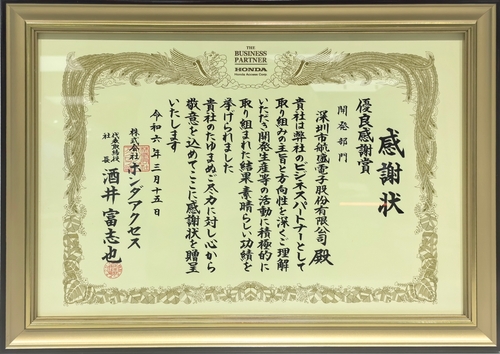 THE
BUSINESS
PARTNER
HONDA
Honda Access Corp.
感謝状
優良感謝賞
開発部門
深圳市航盛電子股份有限公司 殿
貴社は弊社のビジネスパートナーとして
取り組みの主旨と方向性を深くご理解
いただき開発生産等の活動に積極的に
取り組まれた結果素晴らしい功績を
挙げられました
貴社のたゆまぬご尽力に対し心から
敬意を込めてここに感謝状を贈呈
いたします
令和六年三月十五日
株式会社ホンダアクセス
代表取締役
社長 酒井富志也